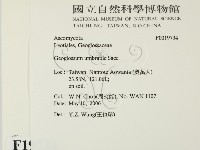 國立自然科學博物館
NATIONAL MUSEUM OF NATURAL SCIENCE
TAICHUNG, TAIWAN, R.O.CHINA
Ascomycota F0019734
Leotiales, Geoglossaceae
Geoglossum umbratile Sacc
Loc: Taiwan, Nantou, Aowanta (奧萬大)
23.53N, 121.00E;
on soil.
Col: W.N. Chou(周文能), No. WAN 1107
Date: May 10, 2006
Det: Y.Z. Wang(王也珍)
F19